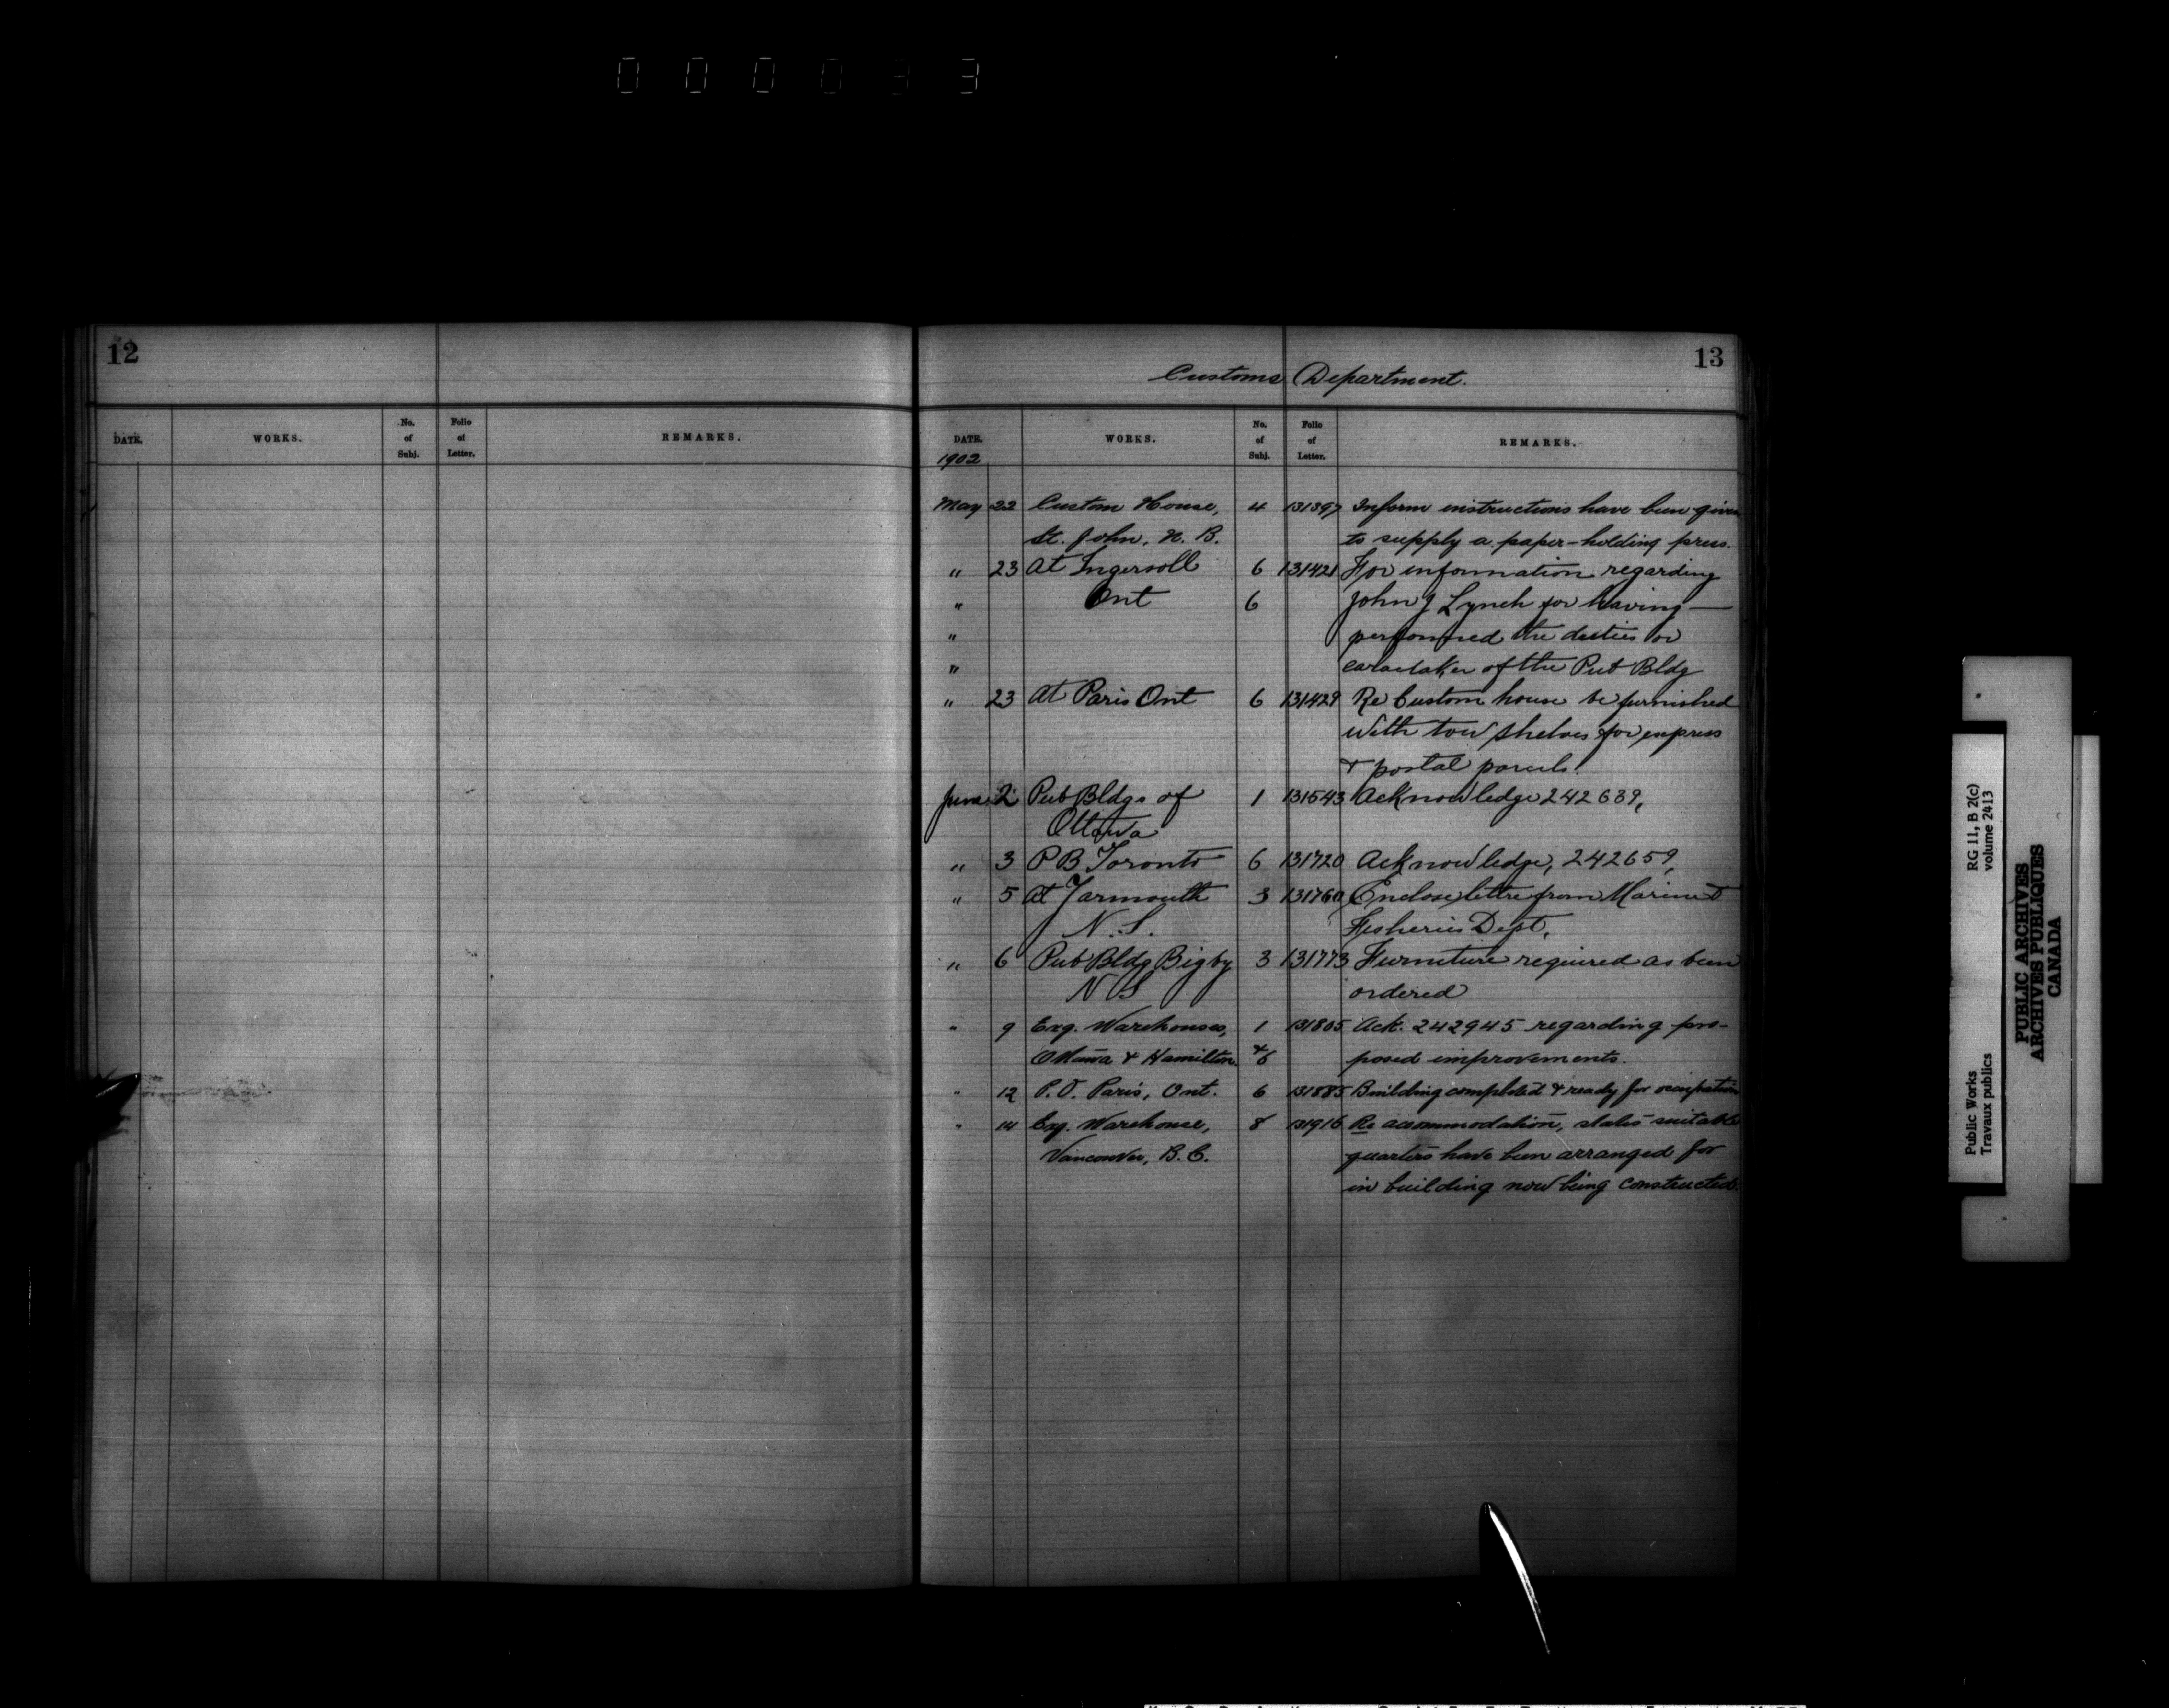 000033
12
DATE. WORKS. No. of Subj. Folio of Letter. REMARKS.
13
Customs Department.
DATE. WORKS. No. of Subj. Folio of Letter. REMARKS.
1902
May 22 Custom House, 4 131397 Inform instructions have been given
St. John, N. B. to supply a paper-holding press.
" 23 At Ingersoll 6 131421 For information regarding
" Ont 6 John J Lynch for having —
" performed the duties or
" caraetaker of the Pub Bldg
" 23 At Paris Ont 6 131429 Re Custom house be furnished
with tow shelves for express
& postal parcels.
June 2 Pub Bldgs of 1 131543 Acknowledge 242639,
Ottawa
" 3 P B Toronto 6 131720 Acknowledge, 242659,
" 5 At Yarmouth 3 131760 Enclose lettre from Marine &
N. S. Fisheries Dept,
" 6 Pub Bldg Bigby 3 131773 Furniture required as been
N S ordered
" 9 Exg. Warehouses, 1 131805 Ack. 242945 regarding pro-
Ottawa & Hamilton & 6 posed improvements.
" 12 P.O. Paris, Ont. 6 131885 Building completed & ready for occupation
" 14 Exg. Warehouse, 8 131916 Re accommodation, states suitable
Vancouver, B.C. quarters have been arranged for
in building now being constructed.
Public Works RG 11, B 2(c)
Travaux publics volume 2413
PUBLIC ARCHIVES
ARCHIVES PUBLIQUES
CANADA